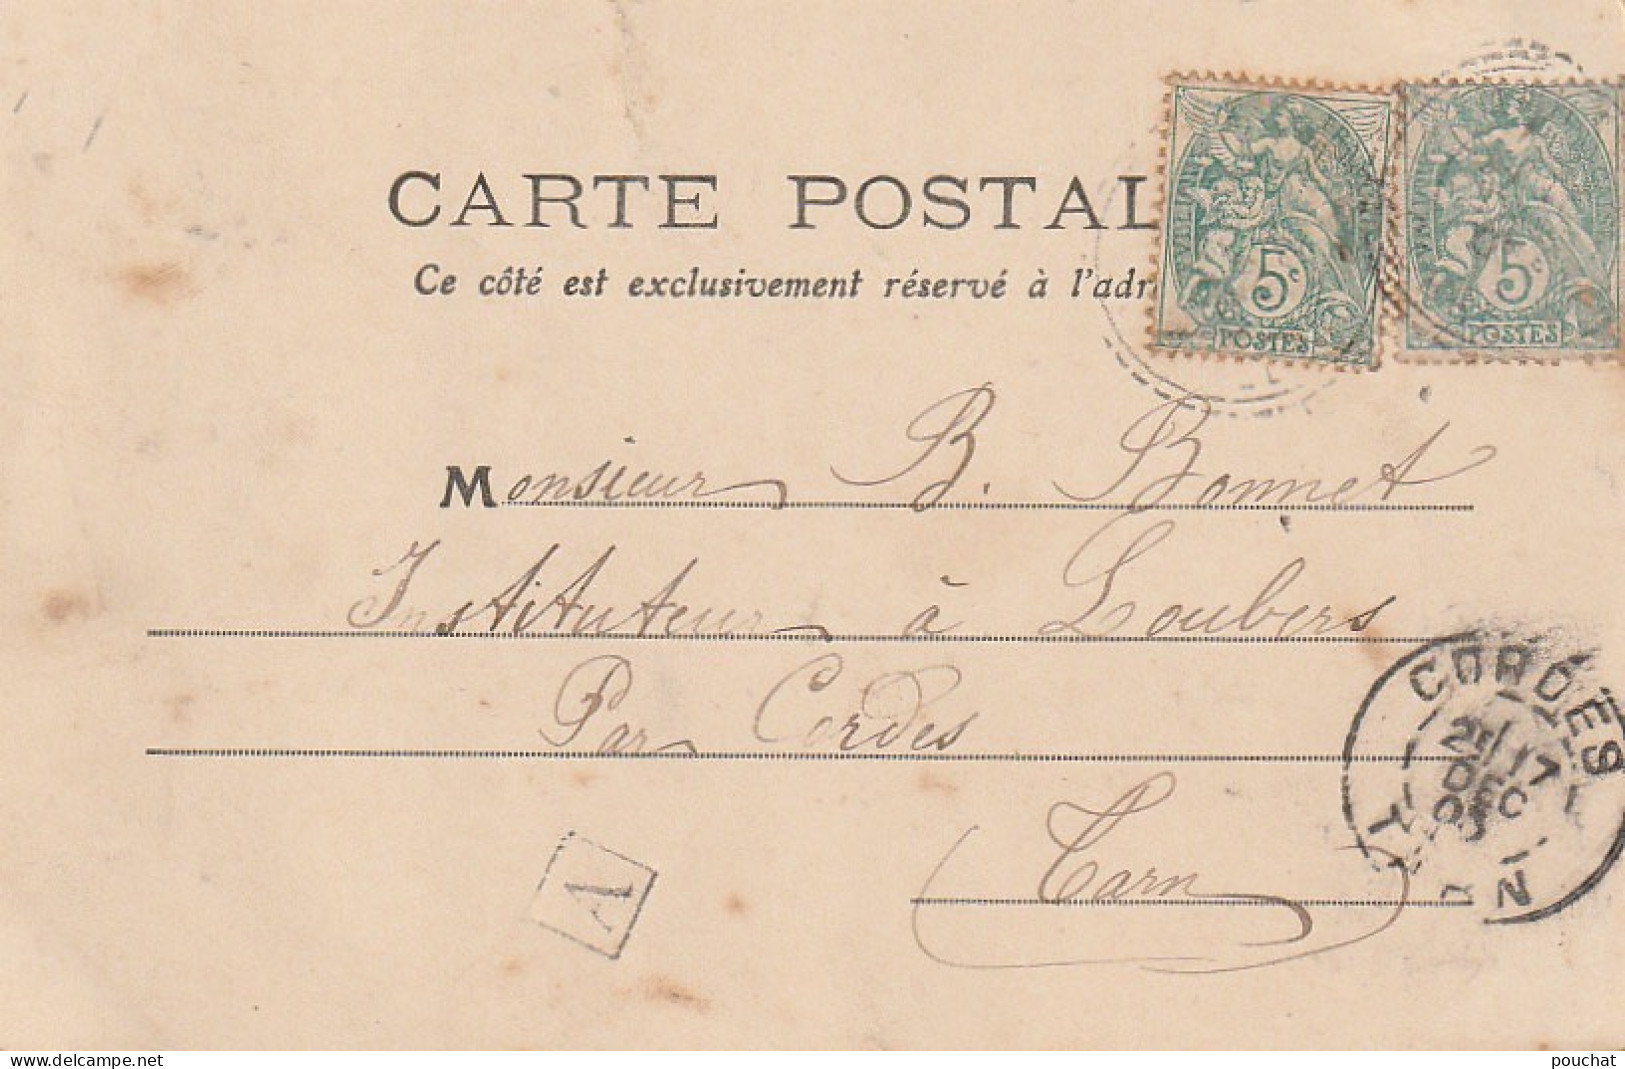 CARTE POSTAL
Ce côté est exclusivement réservé à l'adr
5c
POSTES
5c
POSTES
Monsieur B. Bonnet
Instituteur à Loubers
Par Cordes
Tarn
A
CORDES
17
DEC
TARN
delcampe.net
pouchat